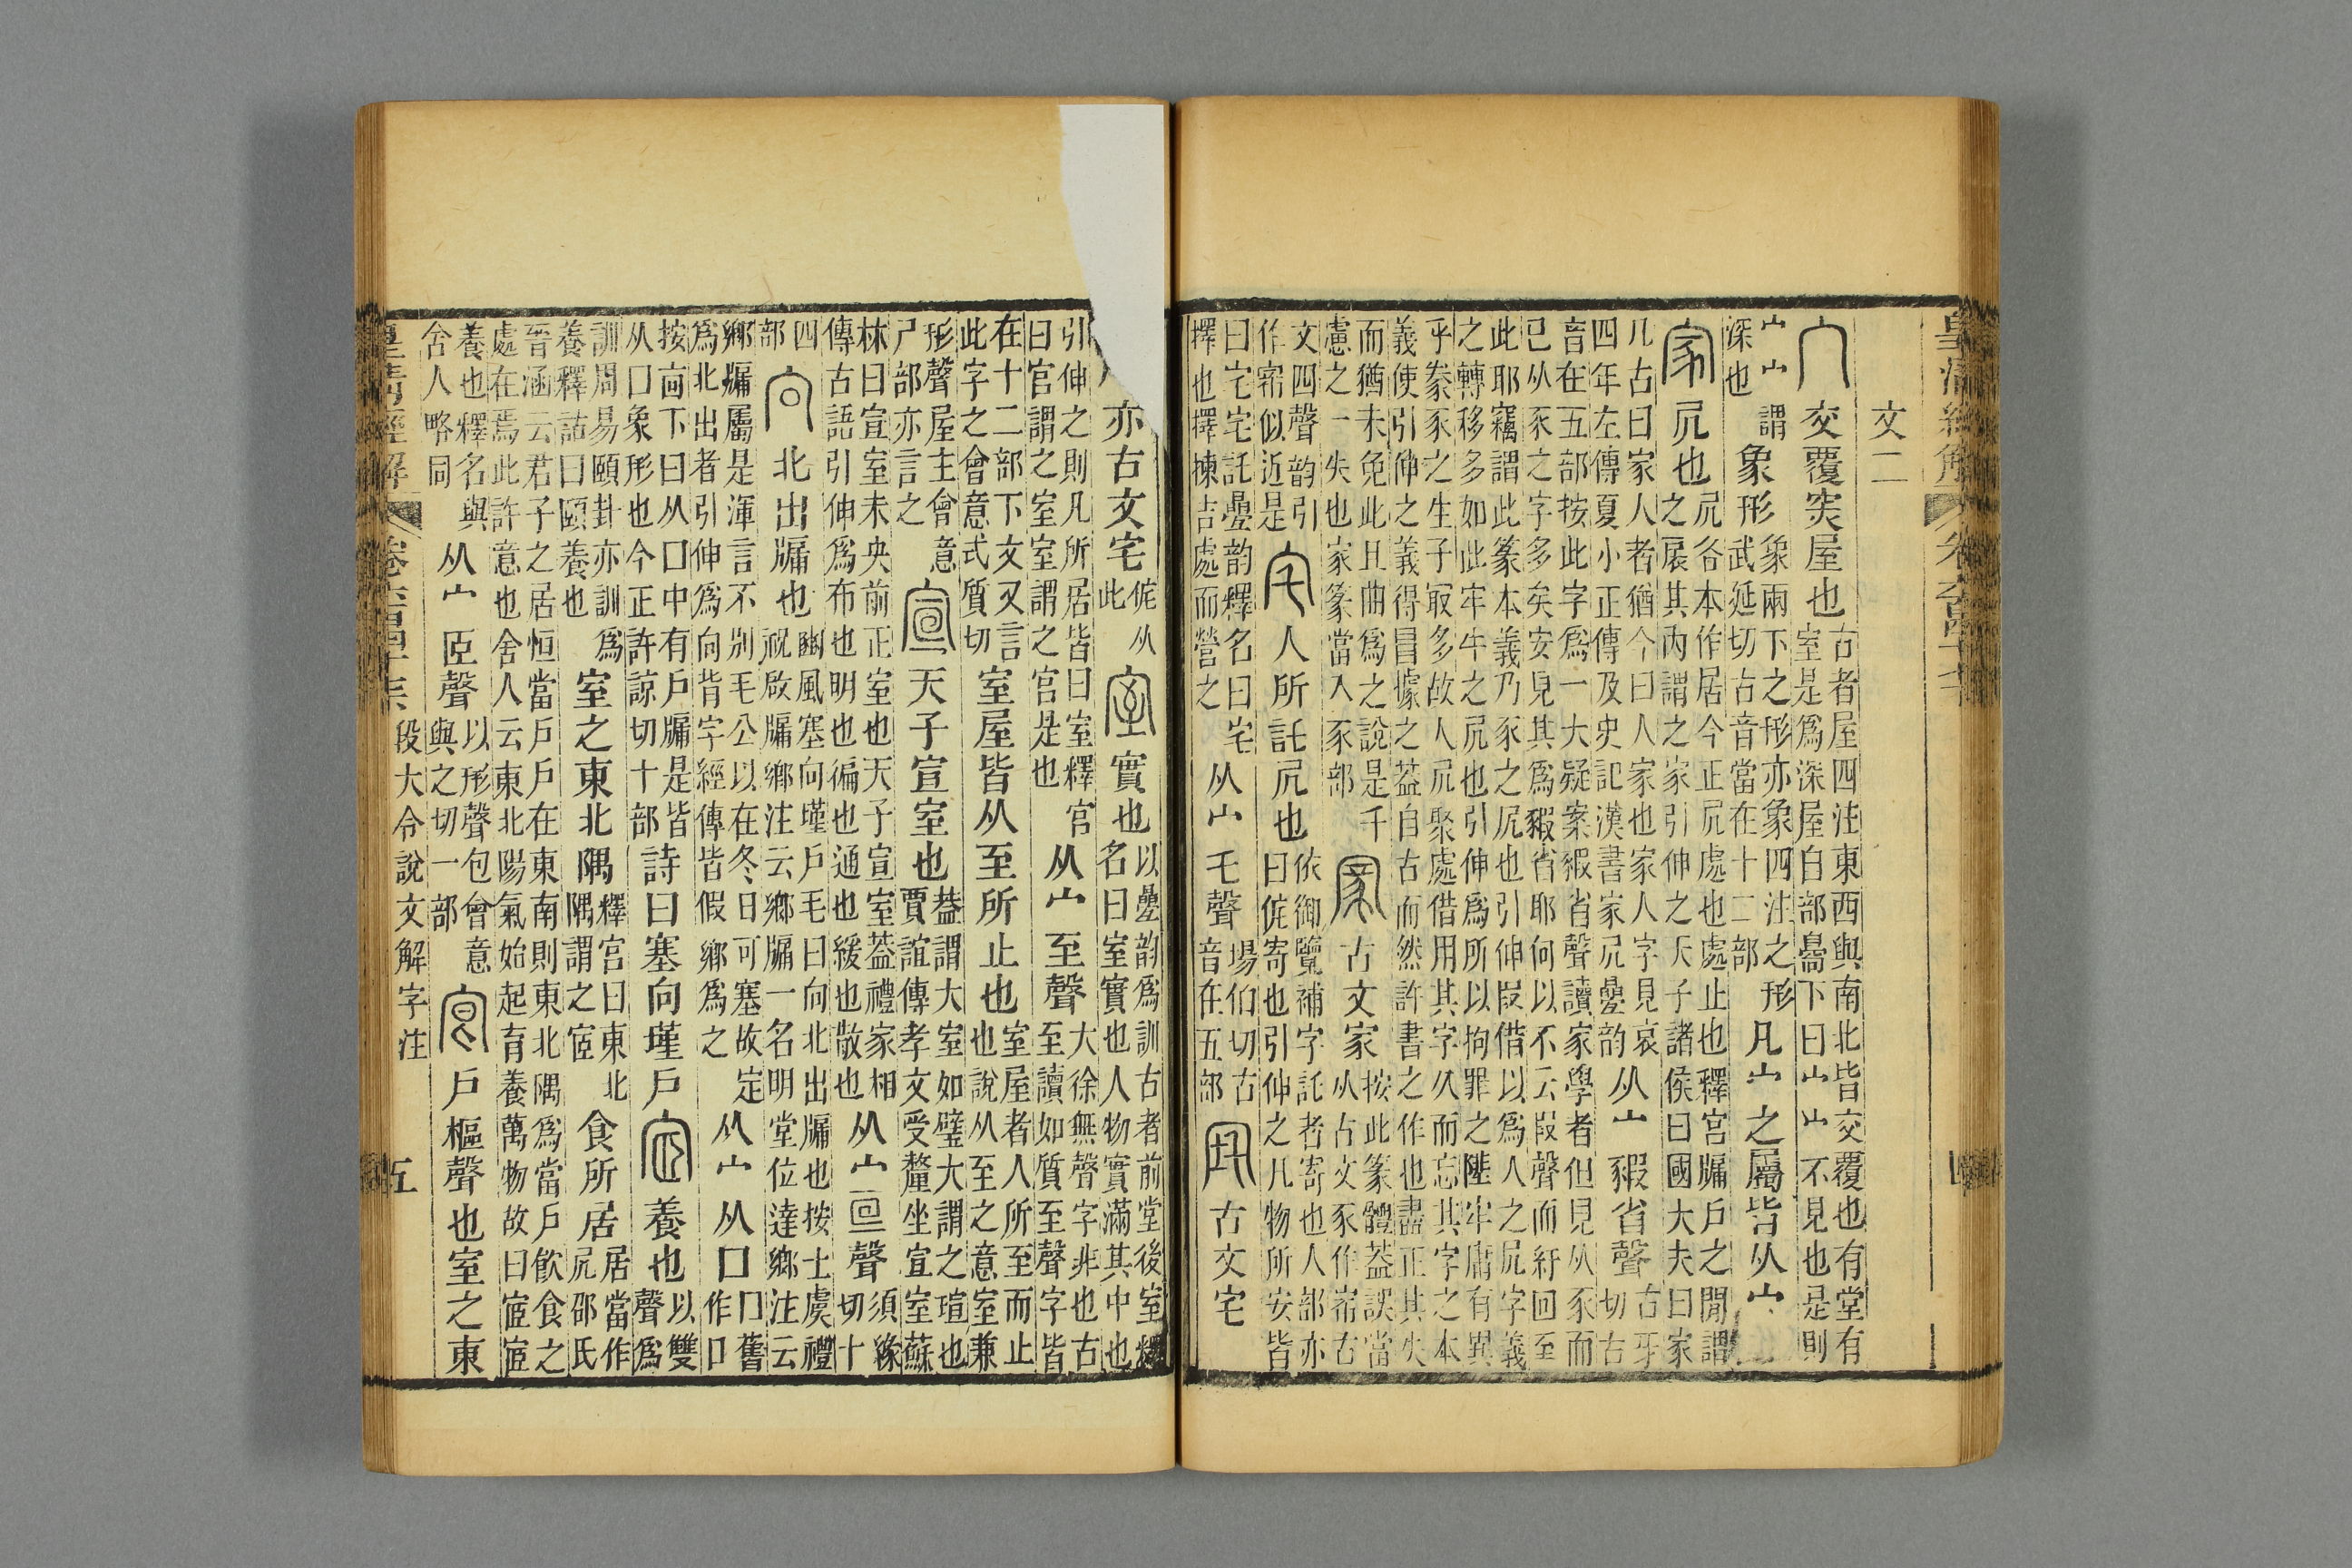 皇清經解 卷六百四十七
文二
交覆宊屋也古者屋四注東西與南北皆交覆也有堂有室是爲深屋自部臱下曰宀宀不見也是則
宀宀謂深也象形象兩下之形亦象四注之形武延切古音當在十二部凡宀之屬皆从宀
凥也凥各本作居今正凥處也處止也釋宮牖戶之閒謂之扆其內謂之家引伸之天子諸侯曰國大夫曰家
凡古曰家人者猶今曰人家也家人字見哀四年左傳夏小正傳及史記漢書家凥曡韵从宀豭省聲古牙切古
音在五部按此字爲一大疑案豭省聲讀家學者但見从豕而已从豕之字多矣安見其爲豭省耶何以不云叚聲而紆回至
此耶竊謂此篆本義乃豕之凥也引伸叚借以爲人之凥字義之轉移多如此牢牛之凥也引伸爲所以拘罪之陛牢庸有異
乎豢豕之生子冣多故人凥聚處借用其字久而忘其字之本義使引伸之義得冒據之葢自古而然許書之作也盡正其失
而猶未免此且曲爲之說是千慮之一失也家篆當入豕部古文家按此篆體葢誤當从古文豕作𡩅古
文四聲韵引作𡩀似近是人所託凥也依御覽補字託者寄也人部亦曰侂寄也引伸之凡物所安皆
曰宅宅託曡韵釋名曰宅擇也擇揀吉處而營之从宀乇聲場伯切古音在五部古文宅
亦古文宅此侂从實也以曡韵爲訓古者前堂後室釋名曰室實也人物實滿其中也
引伸之則凡所居皆曰室釋宮曰宮謂之室室謂之宮是也从宀至聲大徐無聲字非也古至讀如質至聲字皆
在十二部下文又言此字之會意式質切室屋皆从至所止也室屋者人所至而止也說从至之意室兼
形聲屋主會意尸部亦言之天子宣室也葢謂大室如璧大謂之瑄也賈誼傳孝文受釐坐宣室蘇
林曰宣室未央前正室也天子宣室葢禮家相傳古語引伸爲布也明也徧也通也緩也散也从宀亘聲須緣切十
四部北出牖也豳風塞向墐戶毛曰向北出牖也按士虞禮祝啟牖鄉注云鄉牖一名明堂位達鄉注云
鄉牖屬是渾言不別毛公以在冬日可塞故定爲北出者引伸爲向背字經傳皆假鄉爲之从宀从口口舊作冂
按㐭下曰从囗中有戶牖是皆从囗象形也今正許諒切十部詩曰塞向墐戶養也以雙聲爲
訓周易頤卦亦訓爲養釋詁曰頤養也室之東北隅釋宮曰東北隅謂之宧食所居居當作凥邵氏
晉涵云君子之居恒當戶戶在東南則東北隅爲當戶飲食之處在焉此許意也舍人云東北陽氣始起育養萬物故曰宧宧
養也釋名與舍人略同从宀𦣝聲以形聲包會意與之切一部戶樞聲也室之東
皇清經解 卷六百四十七 段大令說文解字注 五